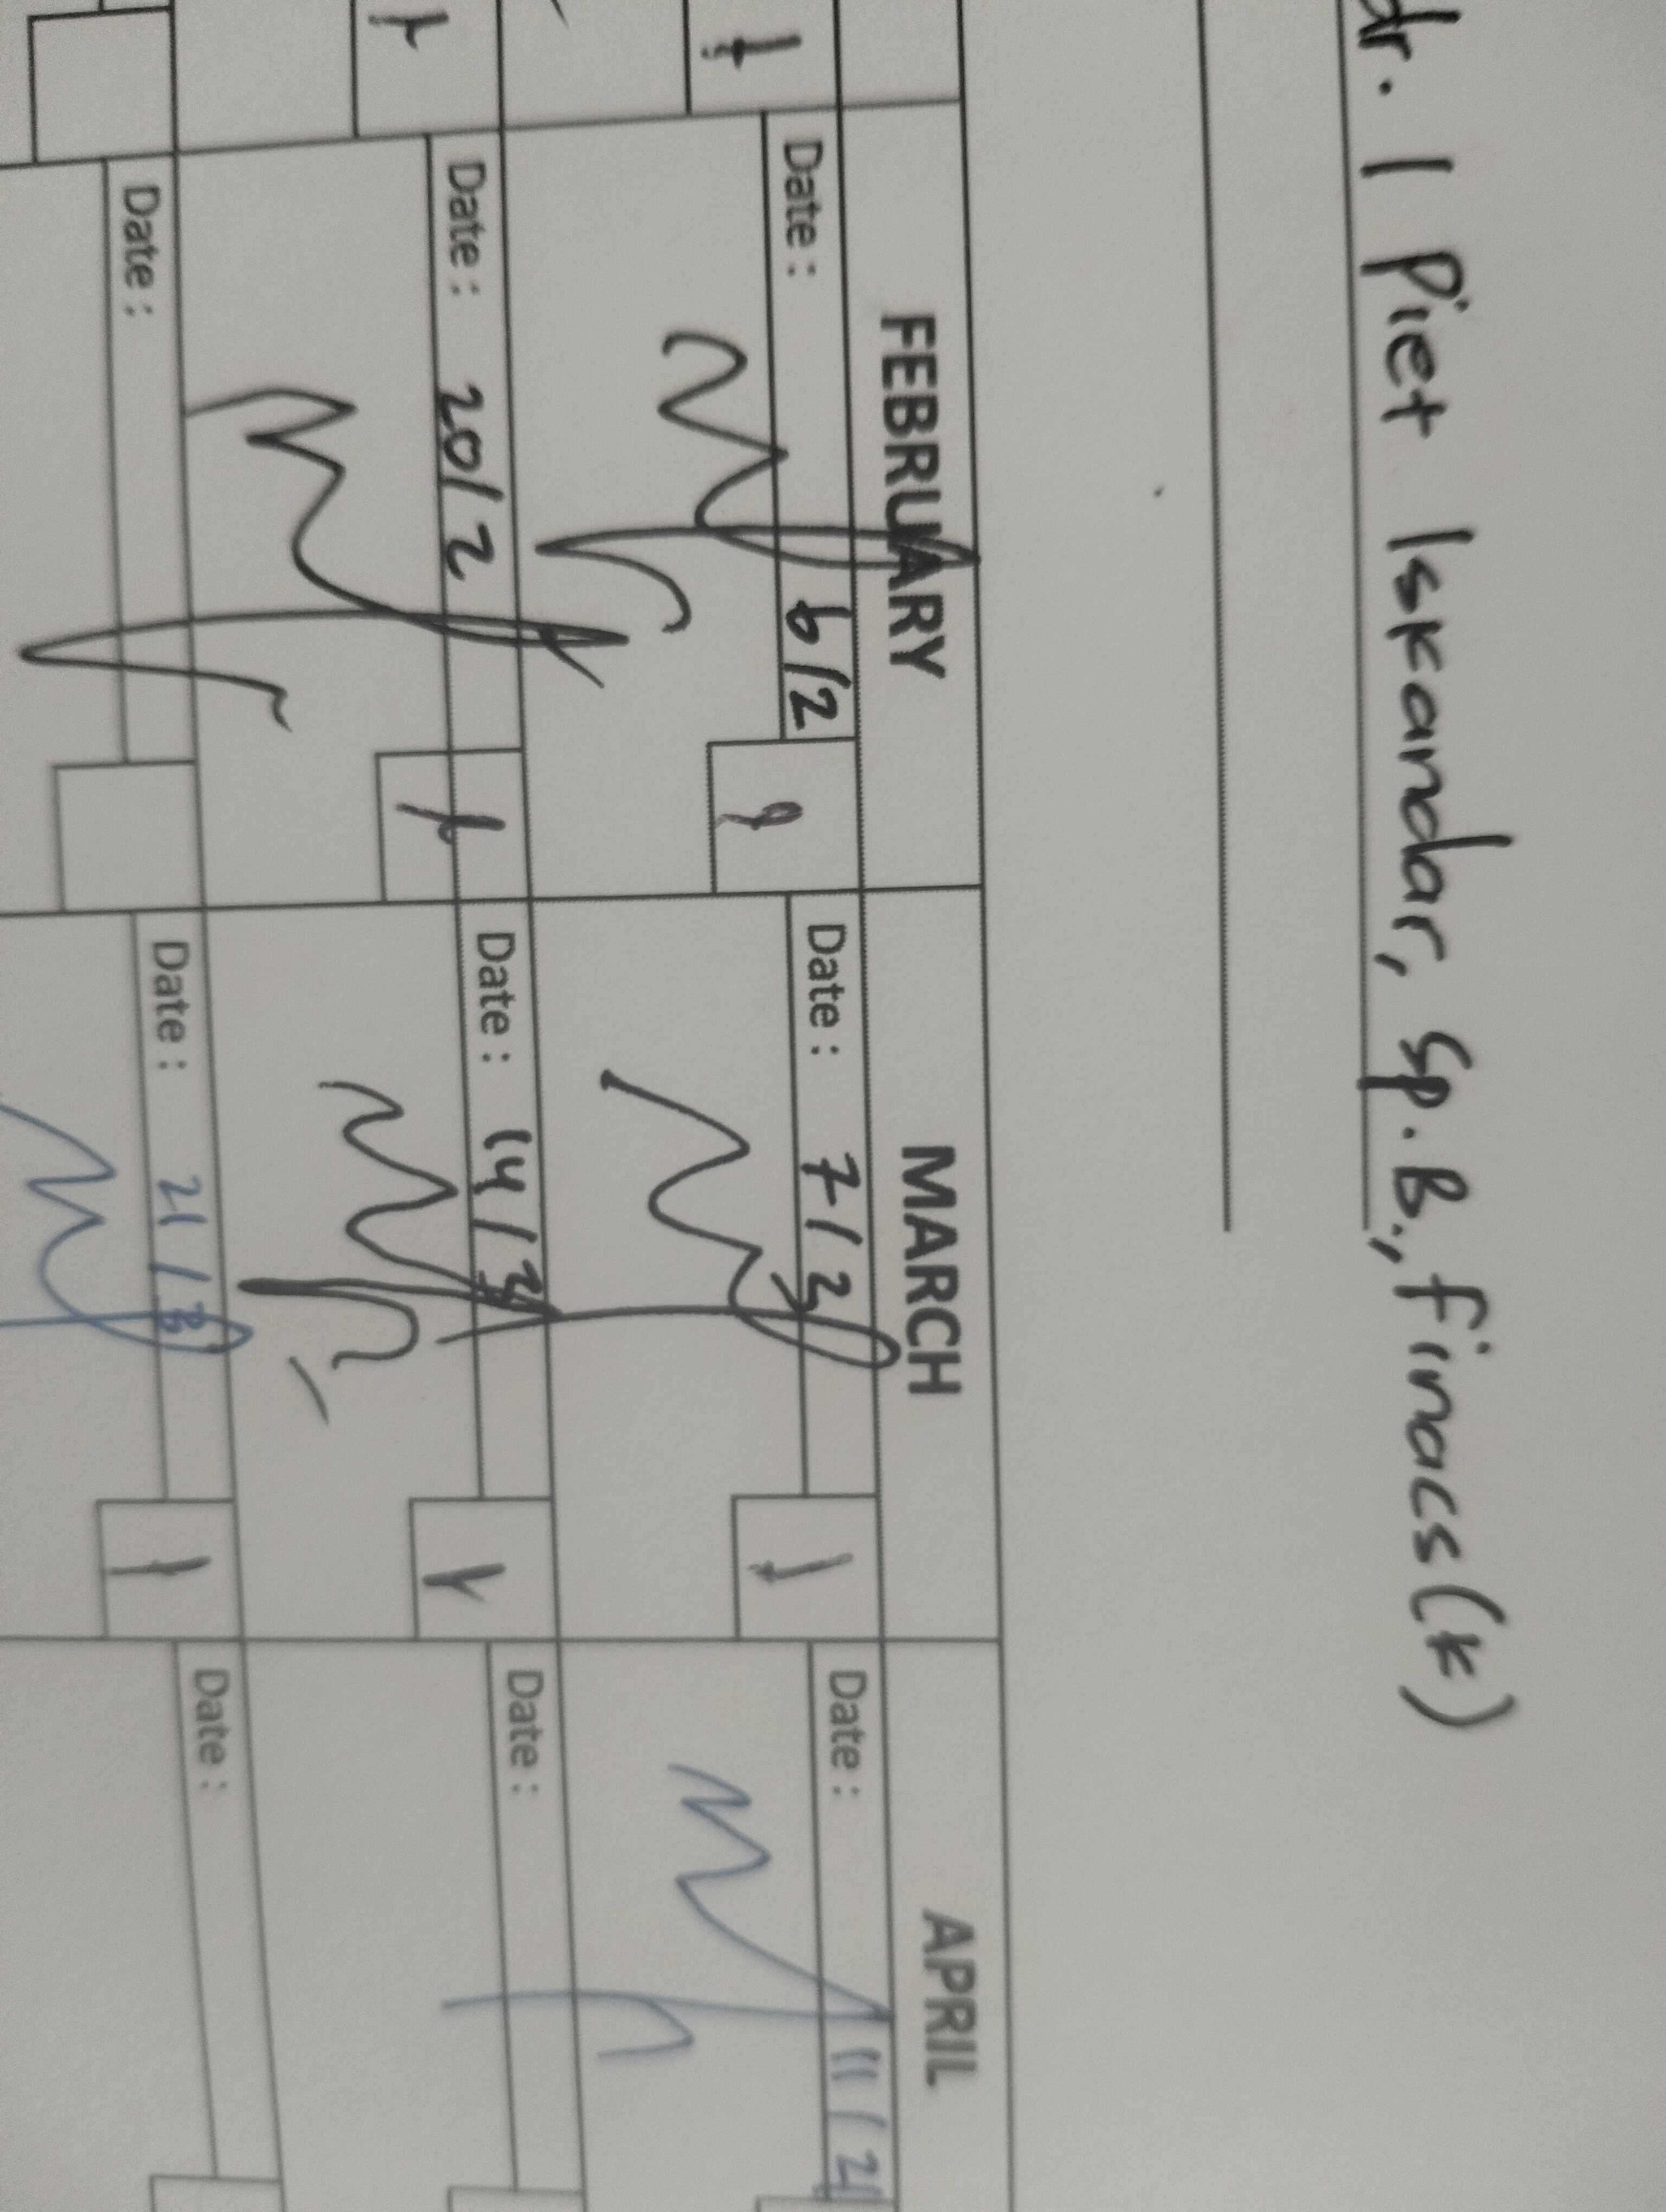 dr. I Piet Iskandar, Sp.B., Finacs(K)
FEBRUARY MARCH APRIL
Date : 6/2 Date : 7/3 Date : 11/4
Date : 20/2 Date : 14/3 Date :
Date : Date : 21/3 Date :